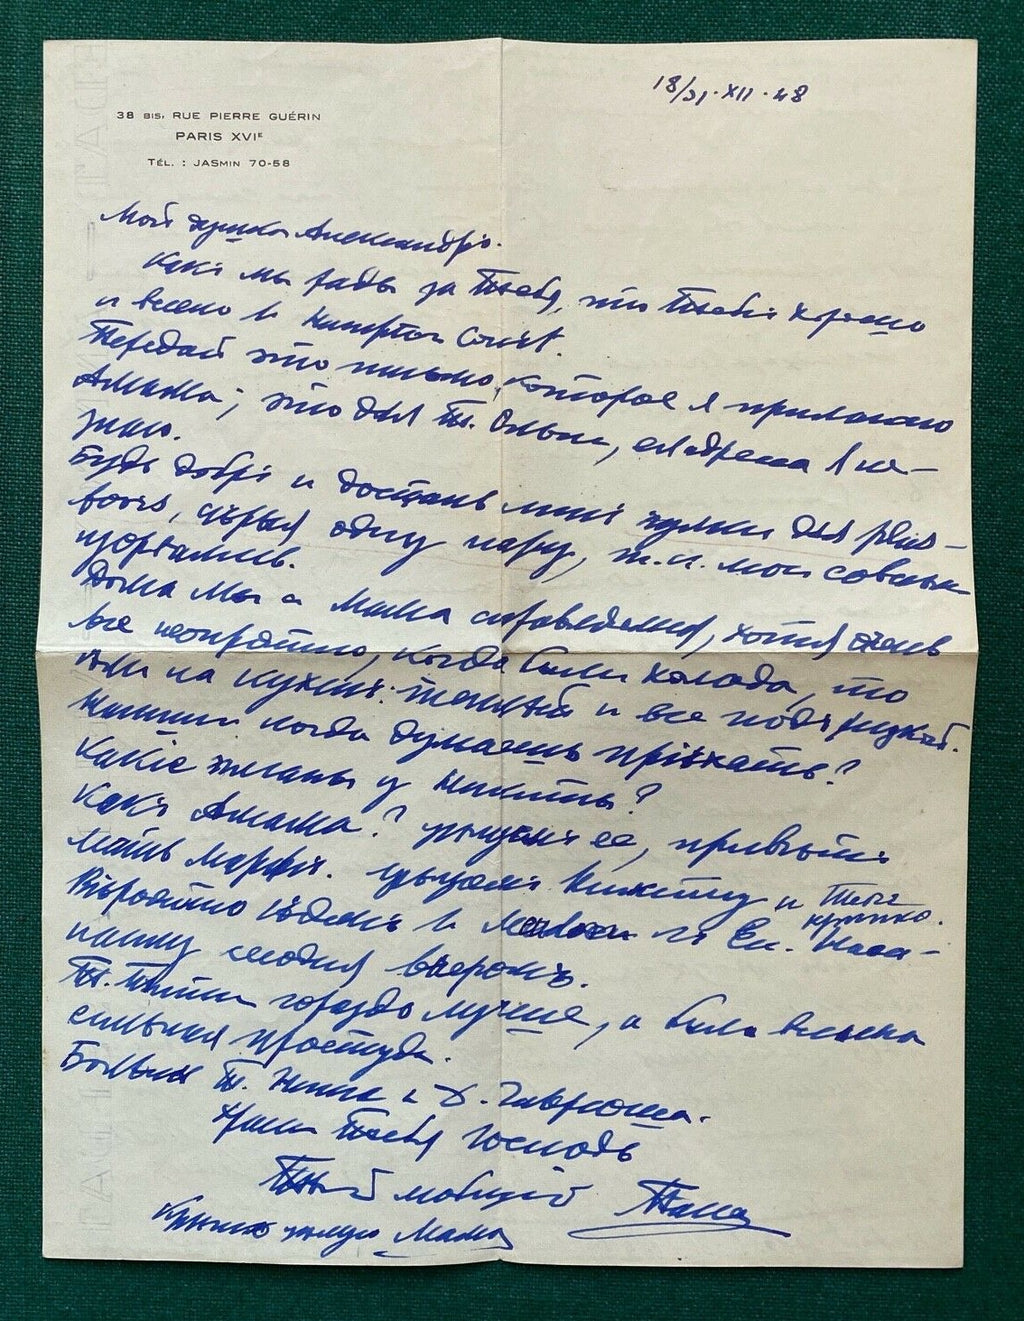 38 BIS, RUE PIERRE GUÉRIN
PARIS XVIE
TÉL. : JASMIN 70-58
18/31·XII·48
Мой душка Александръ.
Какъ мы рады за Тебя, что Тебѣ хорошо
и весело в Hampton Court.
Передай это письмо, которое я прилагаю
Амама; это для т. Ольги, адреса я не-
знаю.
Будь добръ и достань мнѣ чулки для plus-
fours, сѣрыя одну пару, т.к. мои совсѣм
Дома мы с Мама справедемся, хотя очень
все неопрятно, когда были холода, то
ѣли на кухнѣ: теплѣй и все под рукой.
когда думаешь пріѣхать?
Какіе планы у Никиты?
Какъ Амама? цѣлуемъ ее, привѣтъ
мать Марѳѣ. Цѣлуемъ Никиту и Тебя
крѣпко.
Вѣроятно ѣдемъ в к Ел. Ника-
сегодня вечеромъ.
гораздо лучше, а была весьма
сильная простуда.
т. Нина и д.
Храни Тебя Господь
Твой любящій Папа
Крѣпко цѣлую Мама